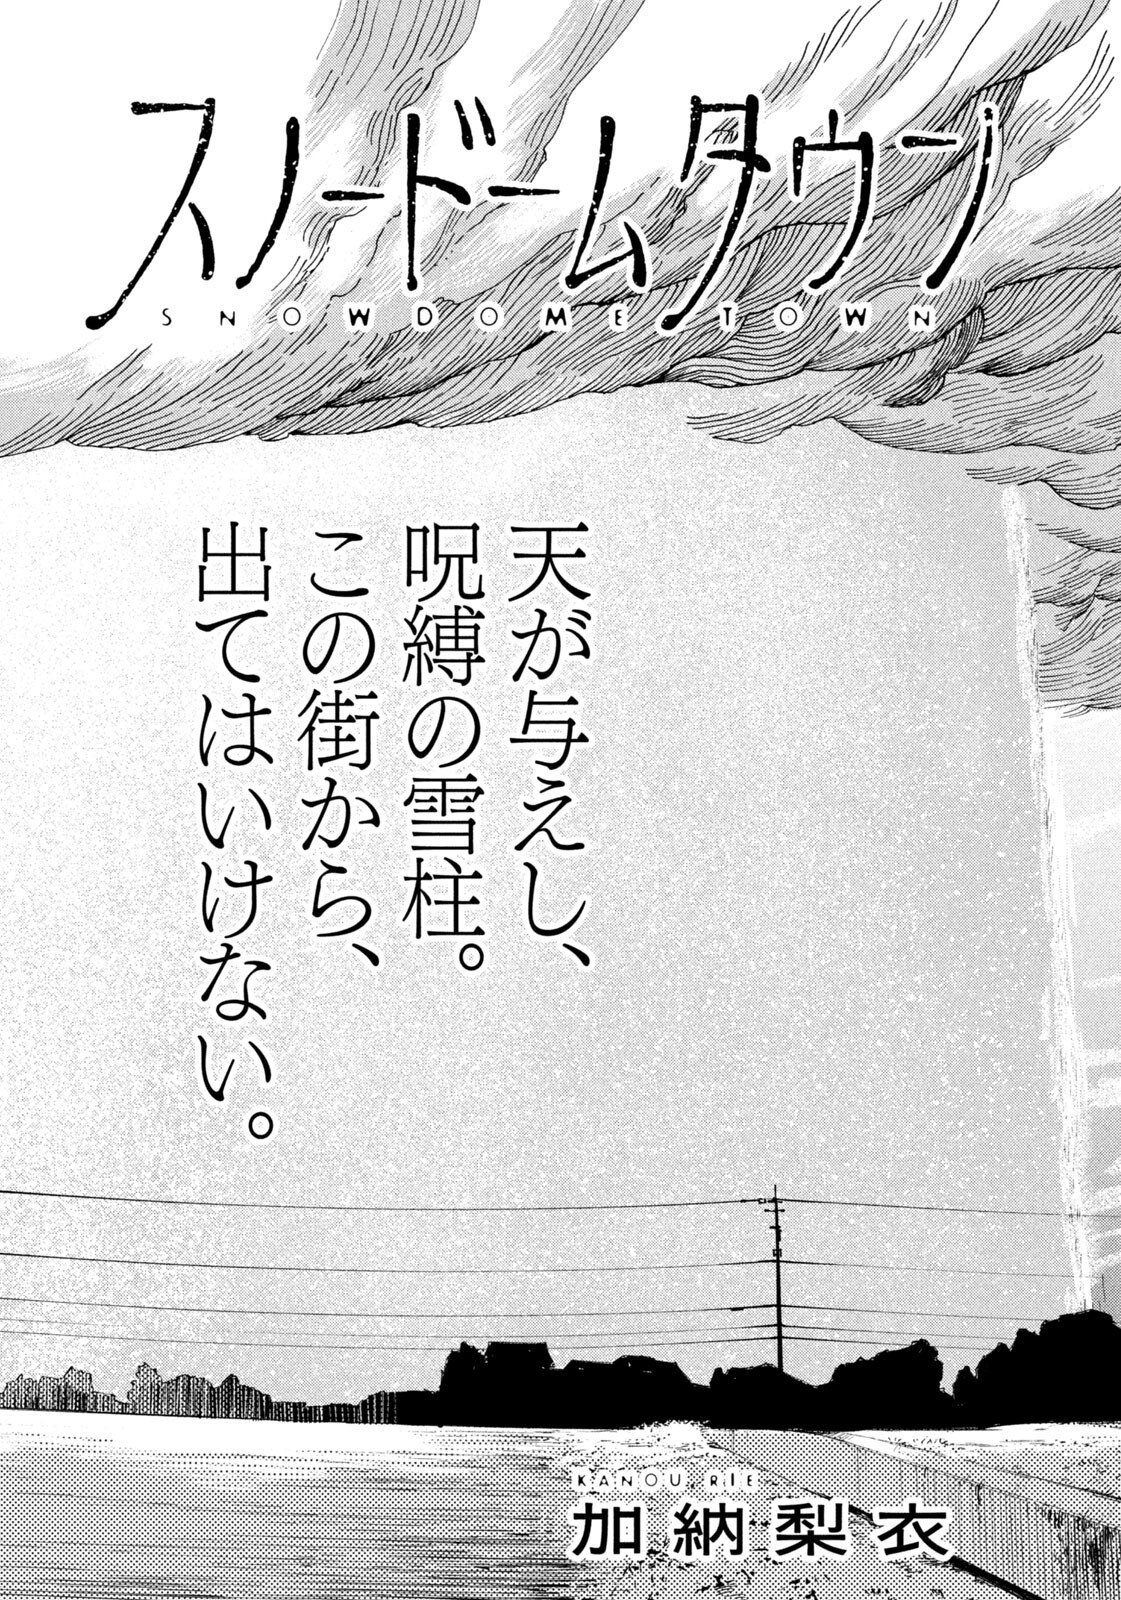 スノードームタウン
SNOWDOME TOWN
天が与えし、
呪縛の雪柱。
この街から、
出てはいけない。
KANOU RIE
加納梨衣